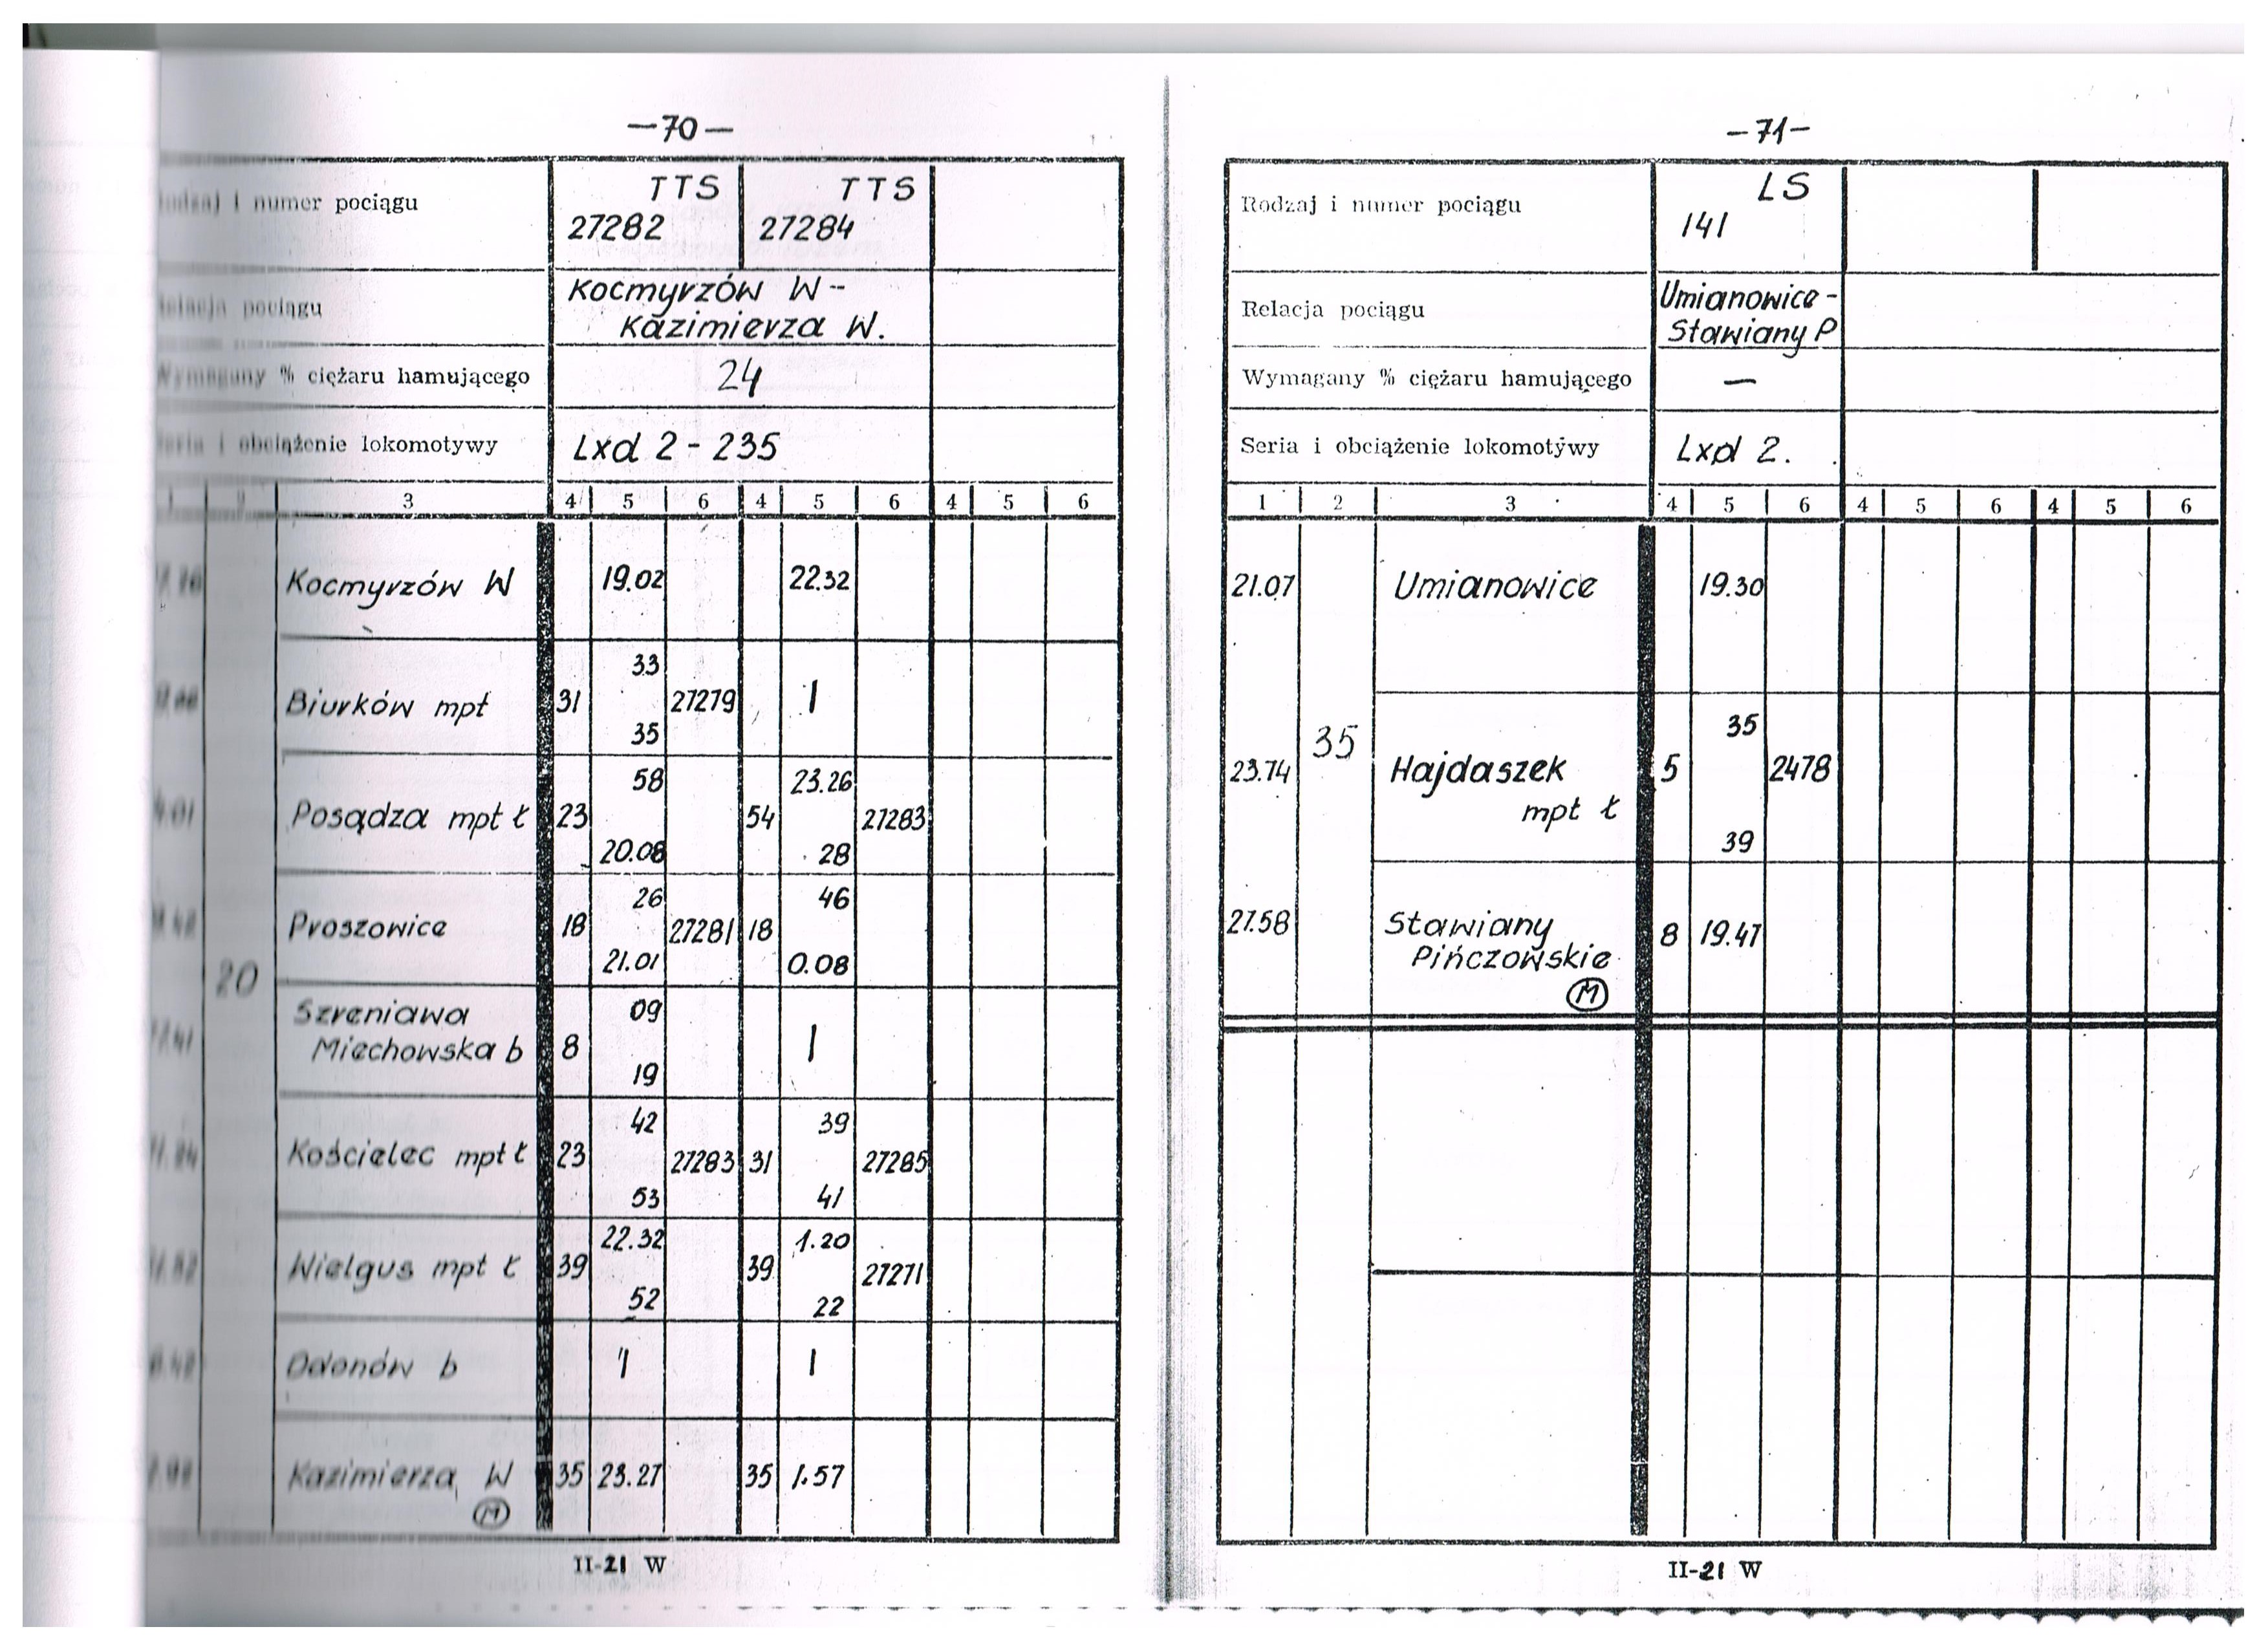 —70—
numer pociągu
TTS TTS
27282 27284
pociągu
Kocmyrzów W -
Kazimierza W.
Wymagany % ciężaru hamującego
24
obciążenie lokomotywy
Lxd 2 - 235
3 4 5 6 4 5 6 4 5 6
Kocmyrzów W 19.02 22.32
33
Biurków mpł 31 27279 |
35
58 23.26
Posądza mpł ł 23 54 27283
20.08 28
26 46
Proszowice 18 27281 18
21.01 0.08
20
Szreniawa 09
Miechowska b 8 |
19
42 39
Kościelec mpł ł 23 27283 31 27285
53 41
22.32 1.20
Wielgus mpł ł 39 39 27271
52 22
Odonów b | |
Kazimierza W 35 23.27 35 1.57
M
II-21 W
—71—
Rodzaj i numer pociągu
LS
141
Relacja pociągu
Umianowice -
Stawiany P
Wymagany % ciężaru hamującego —
Seria i obciążenie lokomotywy Lxd 2.
1 2 3 4 5 6 4 5 6 4 5 6
21.07 Umianowice 19.30
35
35
23.74 Hajdaszek 5 2478
mpł ł
39
27.58 Stawiany 8 19.47
Pińczowskie
M
II-21 W